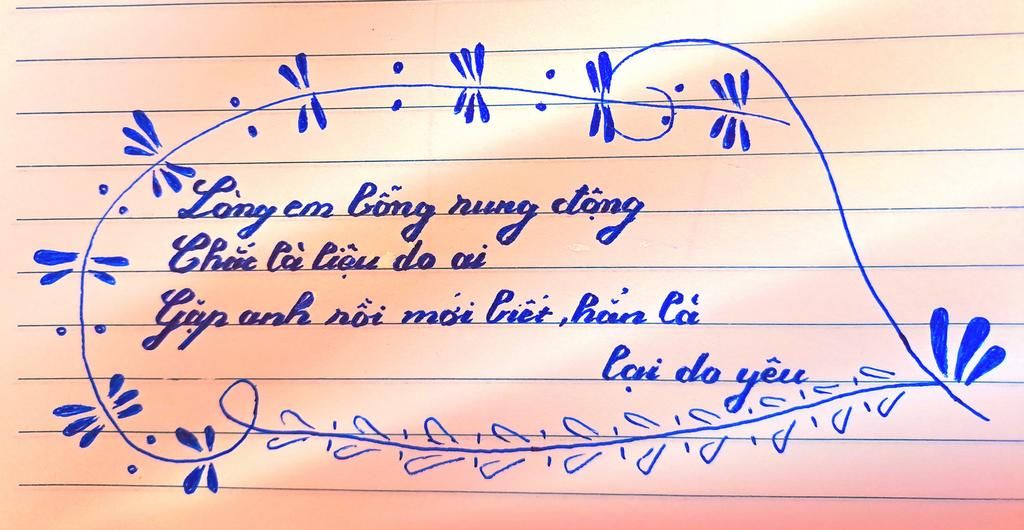 Lòng em bỗng rung động
Chắc là liệu do ai
Gặp anh rồi mới biết, hẳn là
lại do yêu